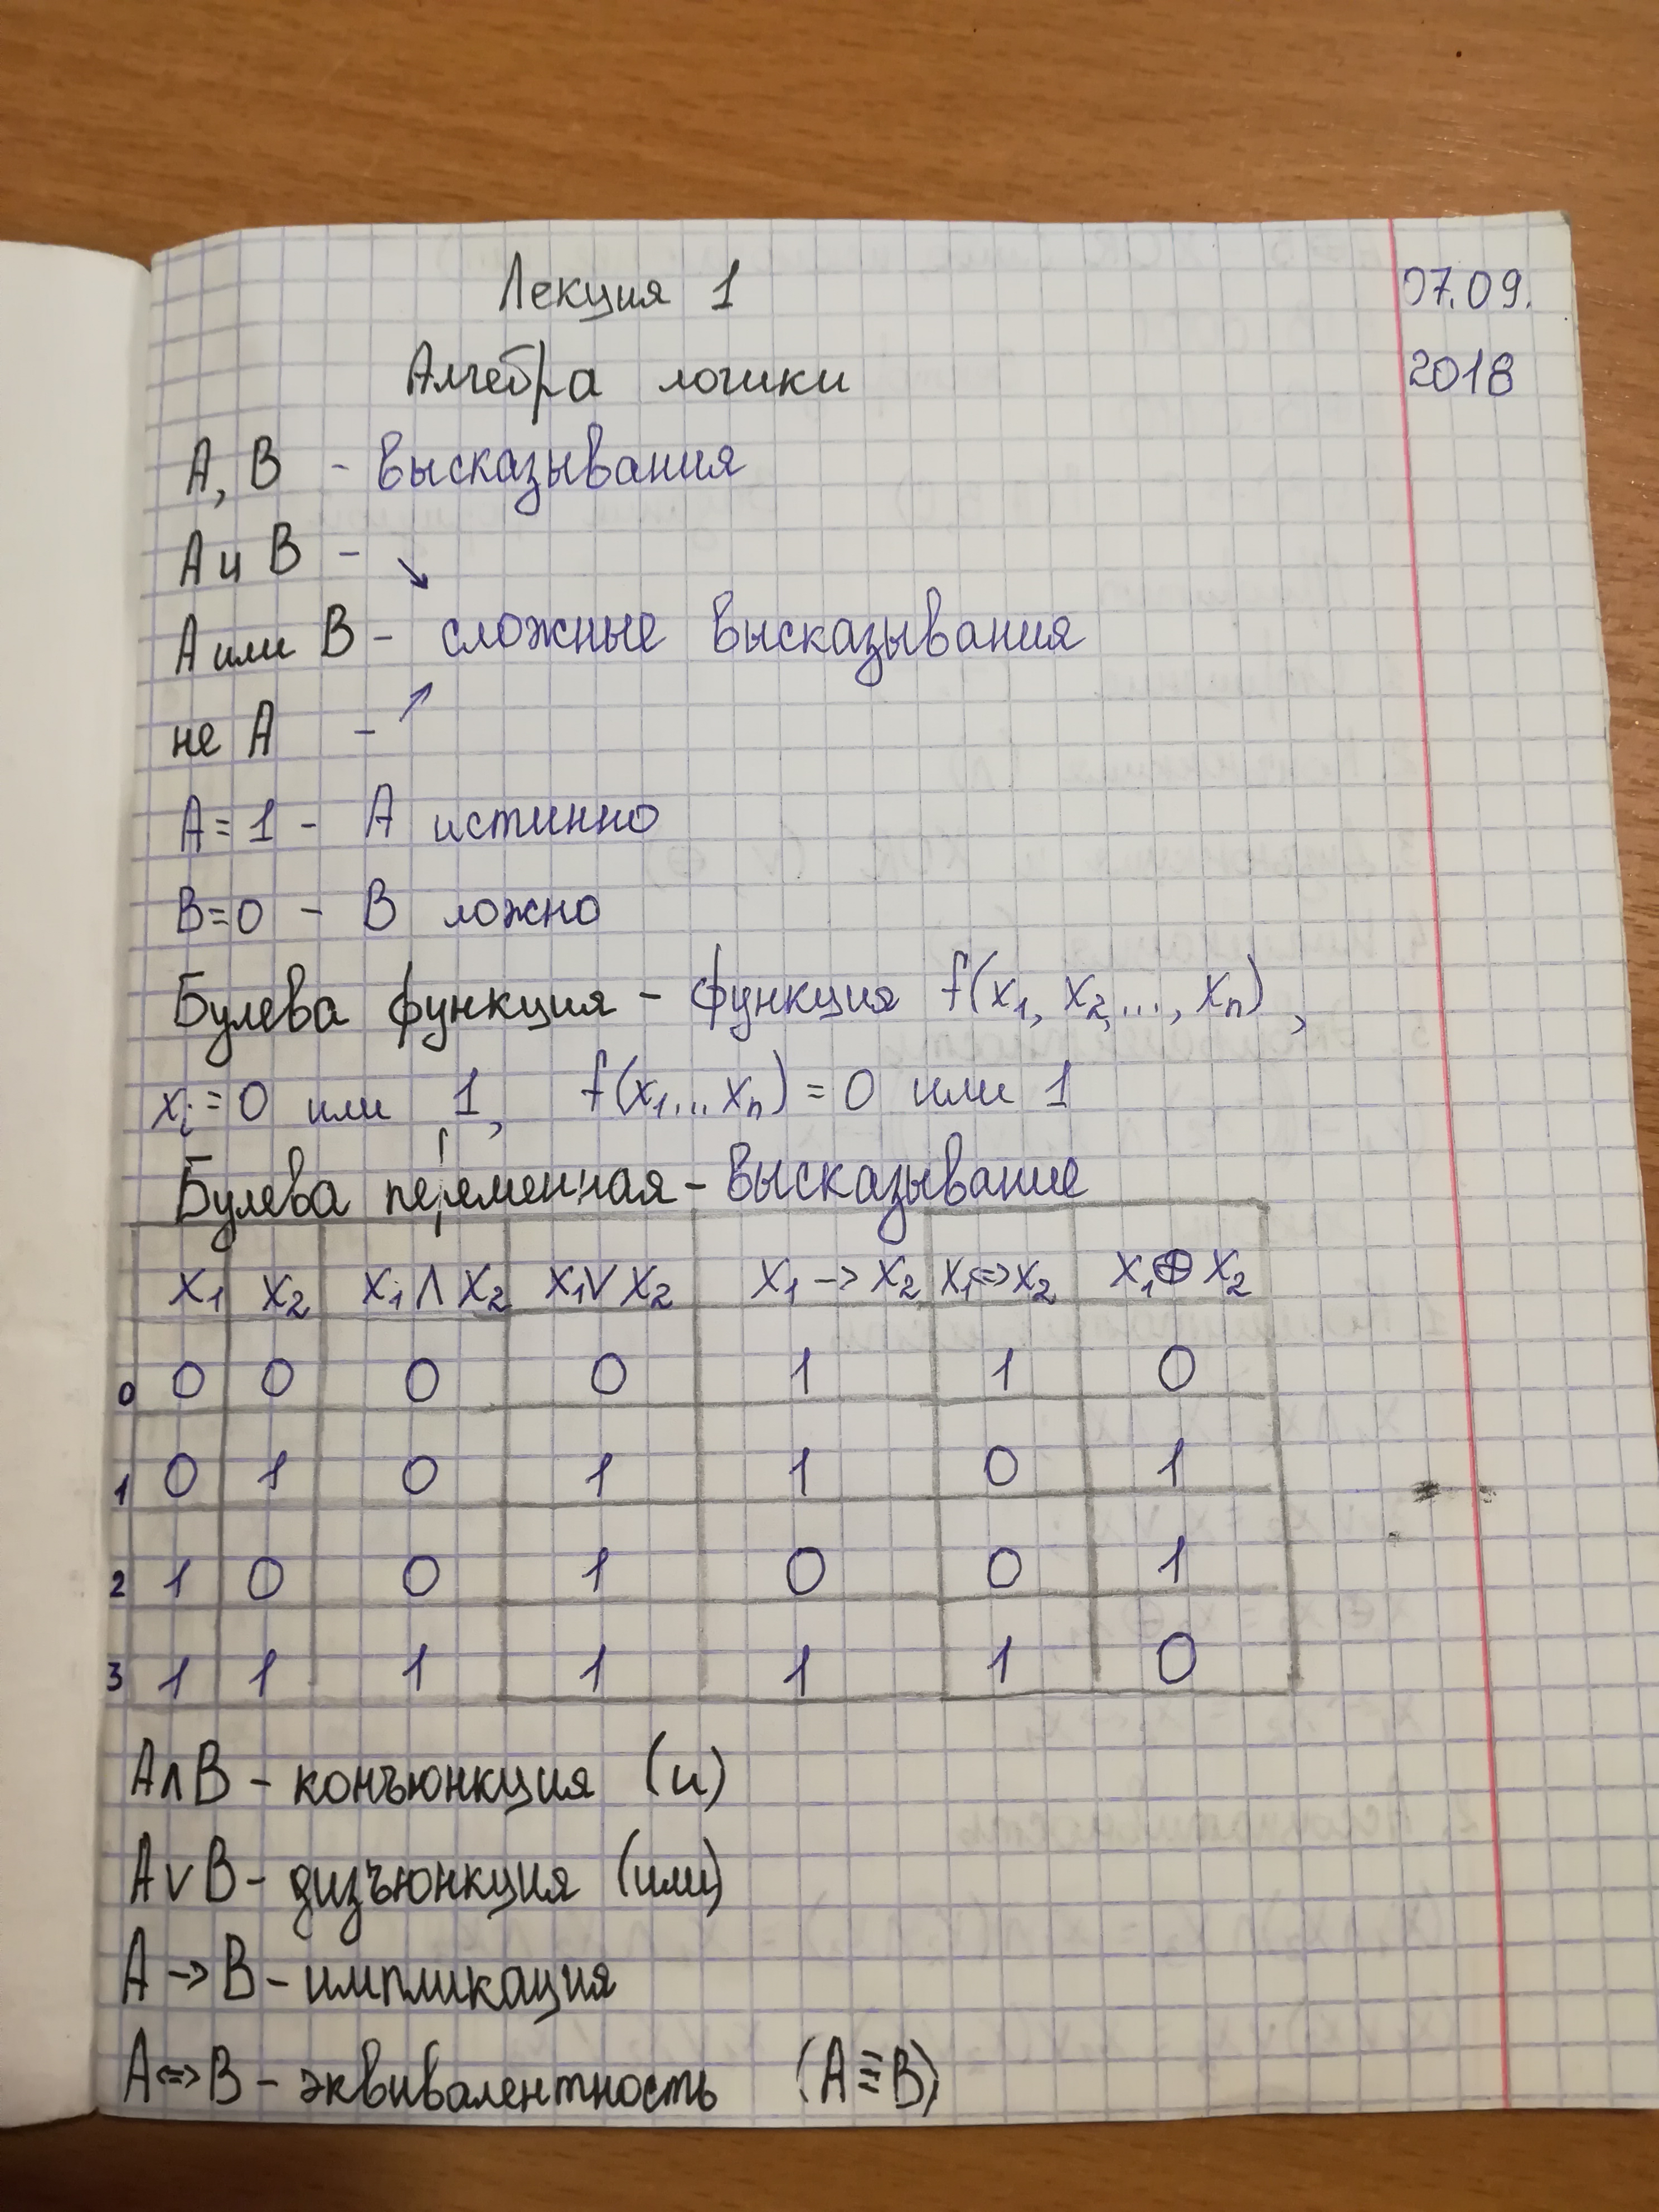 Лекция 1 07.09.
Алгебра логики 2018
A, B - высказывания
A и B - ↘
A или B - сложные высказывания
не A - ↗
A = 1 - A истинно
B = 0 - B ложно
Булева функция - функция f(x₁, x₂, ..., xₙ),
xᵢ = 0 или 1, f(x₁...xₙ) = 0 или 1
Булева переменная - высказывание
x₁ x₂ x₁ ∧ x₂ x₁ ∨ x₂ x₁ -> x₂ x₁ <=> x₂ x₁ ⊕ x₂
0 0 0 0 0 1 1 0
1 0 1 0 1 1 0 1
2 1 0 0 1 0 0 1
3 1 1 1 1 1 1 0
A ∧ B - конъюнкция (и)
A ∨ B - дизъюнкция (или)
A -> B - импликация
A <=> B - эквивалентность (A ≡ B)